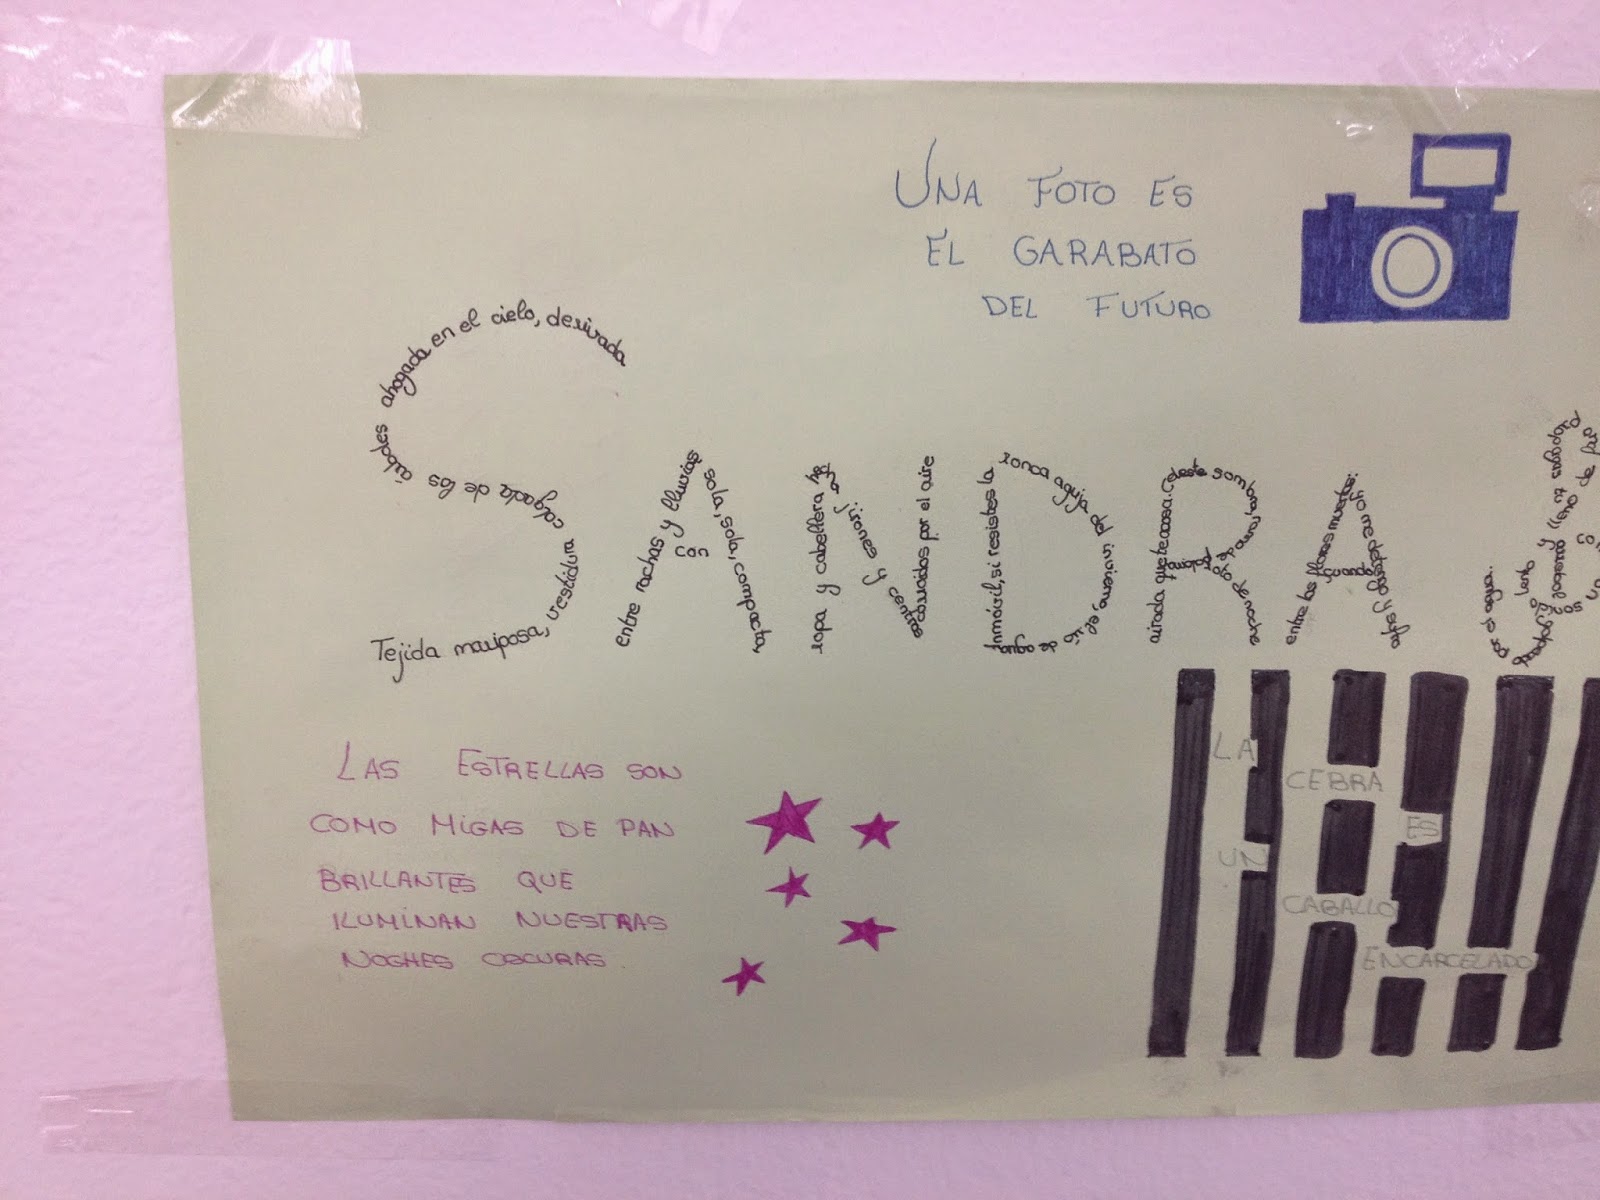 UNA FOTO ES
EL GARABATO
DEL FUTURO
Tejida mariposa, vestidura
colgada de los árboles
ahogada en el cielo, derivada
entre rachas y lluvias
sola, sola, compacta,
con
ropa y cabellera
jirones y centros
corroídos por el aire
Inmóvil, si resistes la
ronca aguja del invierno, el río
de agua
airada que te acosa. Celeste
sombra, ramo de
de noche
entre las flores muertas:
yo me detengo y sufro
LAS ESTRELLAS SON
COMO MIGAS DE PAN
BRILLANTES QUE
ILUMINAN NUESTRAS
NOCHES OSCURAS
LA
CEBRA
ES
UN
CABALLO
ENCARCELADO